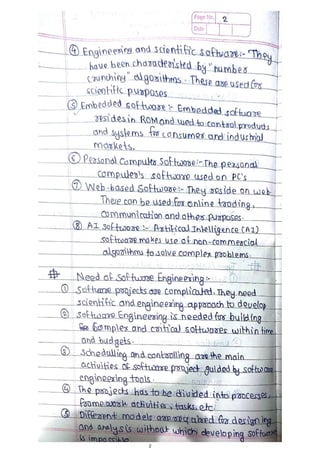 Page No. 2
Date
④ Engineering and scientific software:- They
have been characteristed by "number
crunching" algorithms. These are used for
scientific purposes
⑤ Embedded software:- Embedded software
resides in ROM and used to control products
and systems for consumer and industrial
markets.
⑥ Personal Computer Software:- The personal
computer's software used on PC's
⑦ Web-based Software:- They reside on web
There can be used for online trading,
communication and other purposes.
⑧ AI software:- Artifical Intelligence (AI)
software makes use of non-commercial
algorithms to solve complex problems.
# Need of Software Engineering:-
① Software projects are complicated. They need
scientific and engineering approach to develop
② Software Engineering is needed for building
complex and critical softwares within time
and budgets.
③ Schedulling and controlling are the main
activities of software project guided by software
engineering tools.
④ The projects has to be divided into processes,
framework activities, tasks, etc.
⑤ Different models are required for designing
and analysis without which developing software
is impossible
2